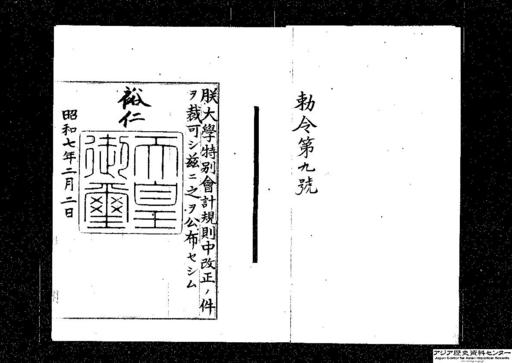 勅令第九號
朕大學特別會計規則中改正ノ件
ヲ裁可シ茲ニ之ヲ公布セシム
裕仁
天皇
御璽
昭和七年二月二日
アジア歴史資料センター
Japan Center for Asian Historical Records